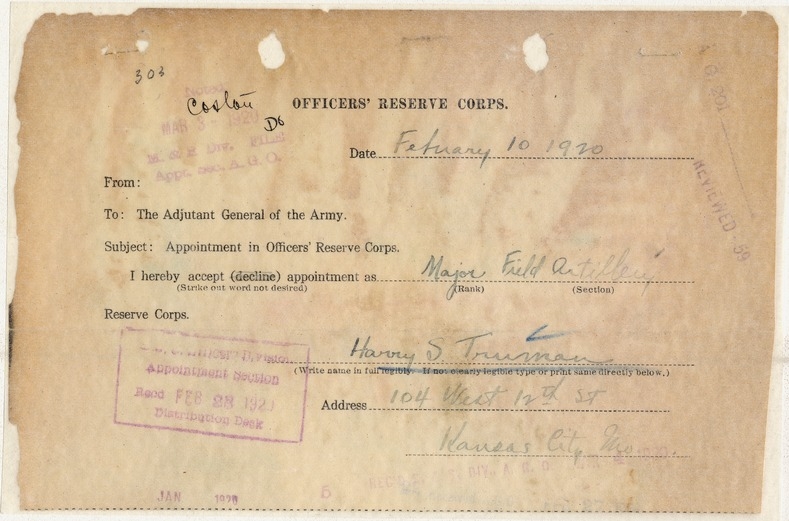 303
Coston
Do
Noted
MAR 3 - 1920
M. & R. Div. FILE
Appt. Sec. A. G. O.
OFFICERS' RESERVE CORPS.
REVIEWED 59
Date Febuary 10 1920
From:
To: The Adjutant General of the Army.
Subject: Appointment in Officers' Reserve Corps.
I hereby accept (decline) appointment as Major Field Artillery
(Strike out word not desired) (Rank) (Section)
Reserve Corps.
Harry S Truman
(Write name in full legibly. If not clearly legible type or print same directly below.)
Division
Appointment Section
Recd FEB 28 1920
Distribution Desk
Address 104 West 12th St
Kansas City Mo.
JAN 1920